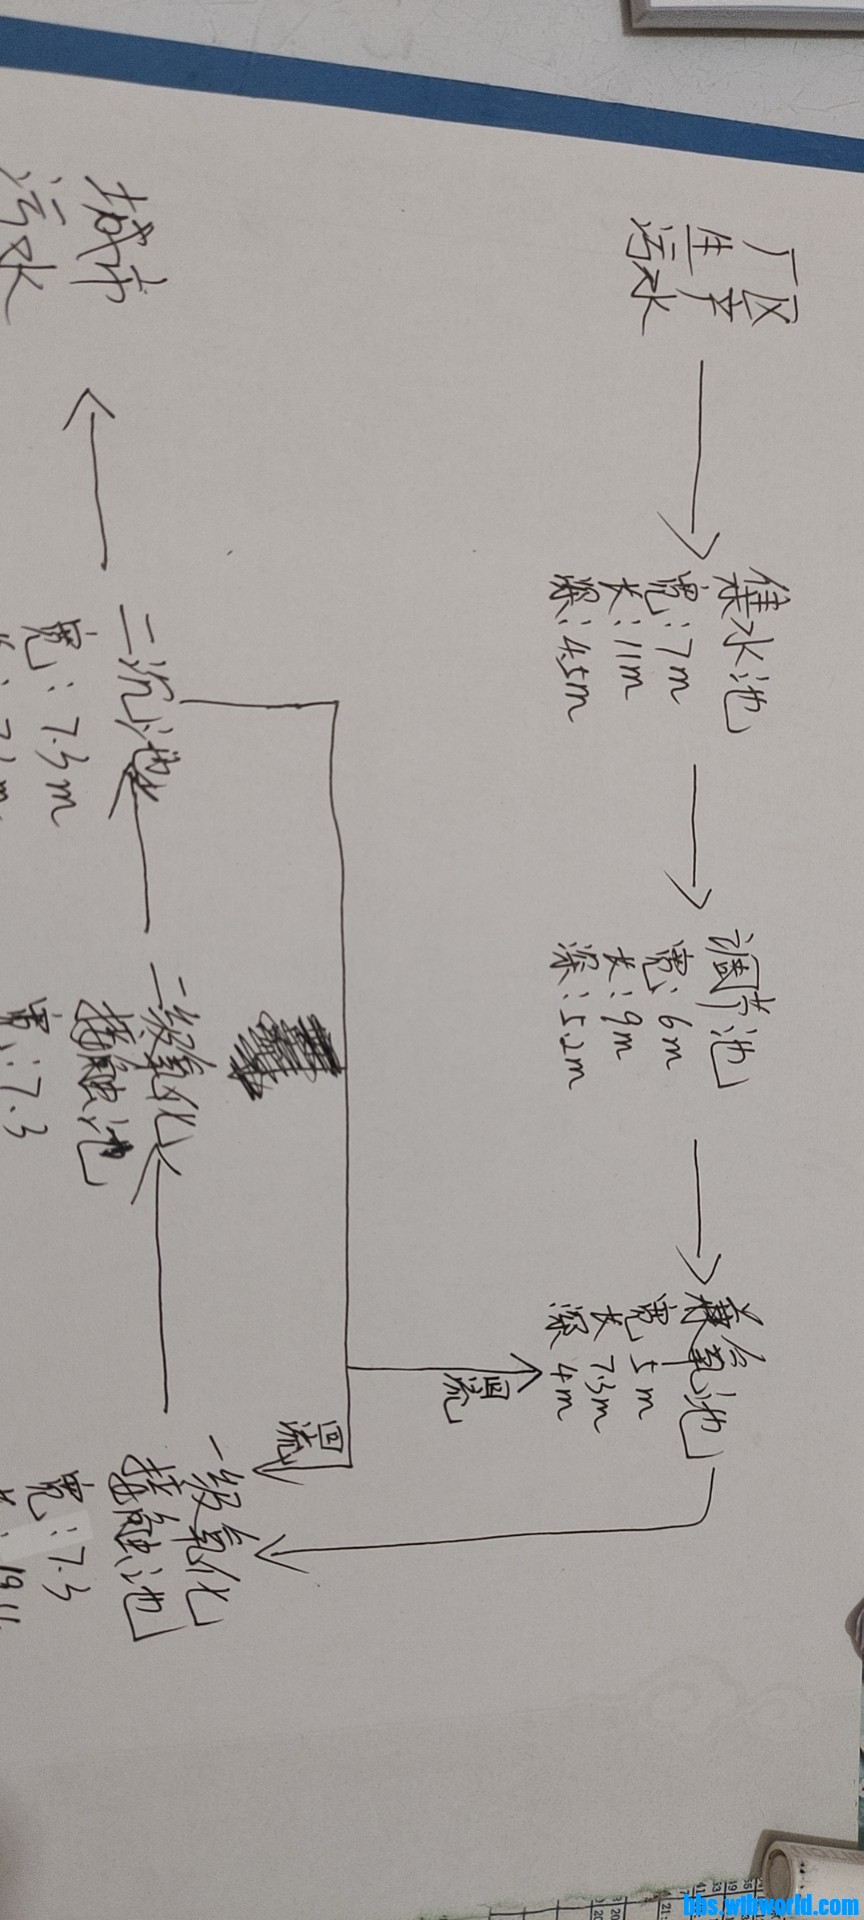 厂区
生产
污水
集水池
宽:7m
长:11m
深:4.5m
调节池
宽:6m
长:9m
深:5.2m
兼氧池
宽 5m
长 7.3m
深 4m
回流
回流
一级氧化
接触池
宽:7.3
二级氧化
接触池
宽:7.3
二沉池
宽:7.3m
城市
污水
bbs.wibworld.com